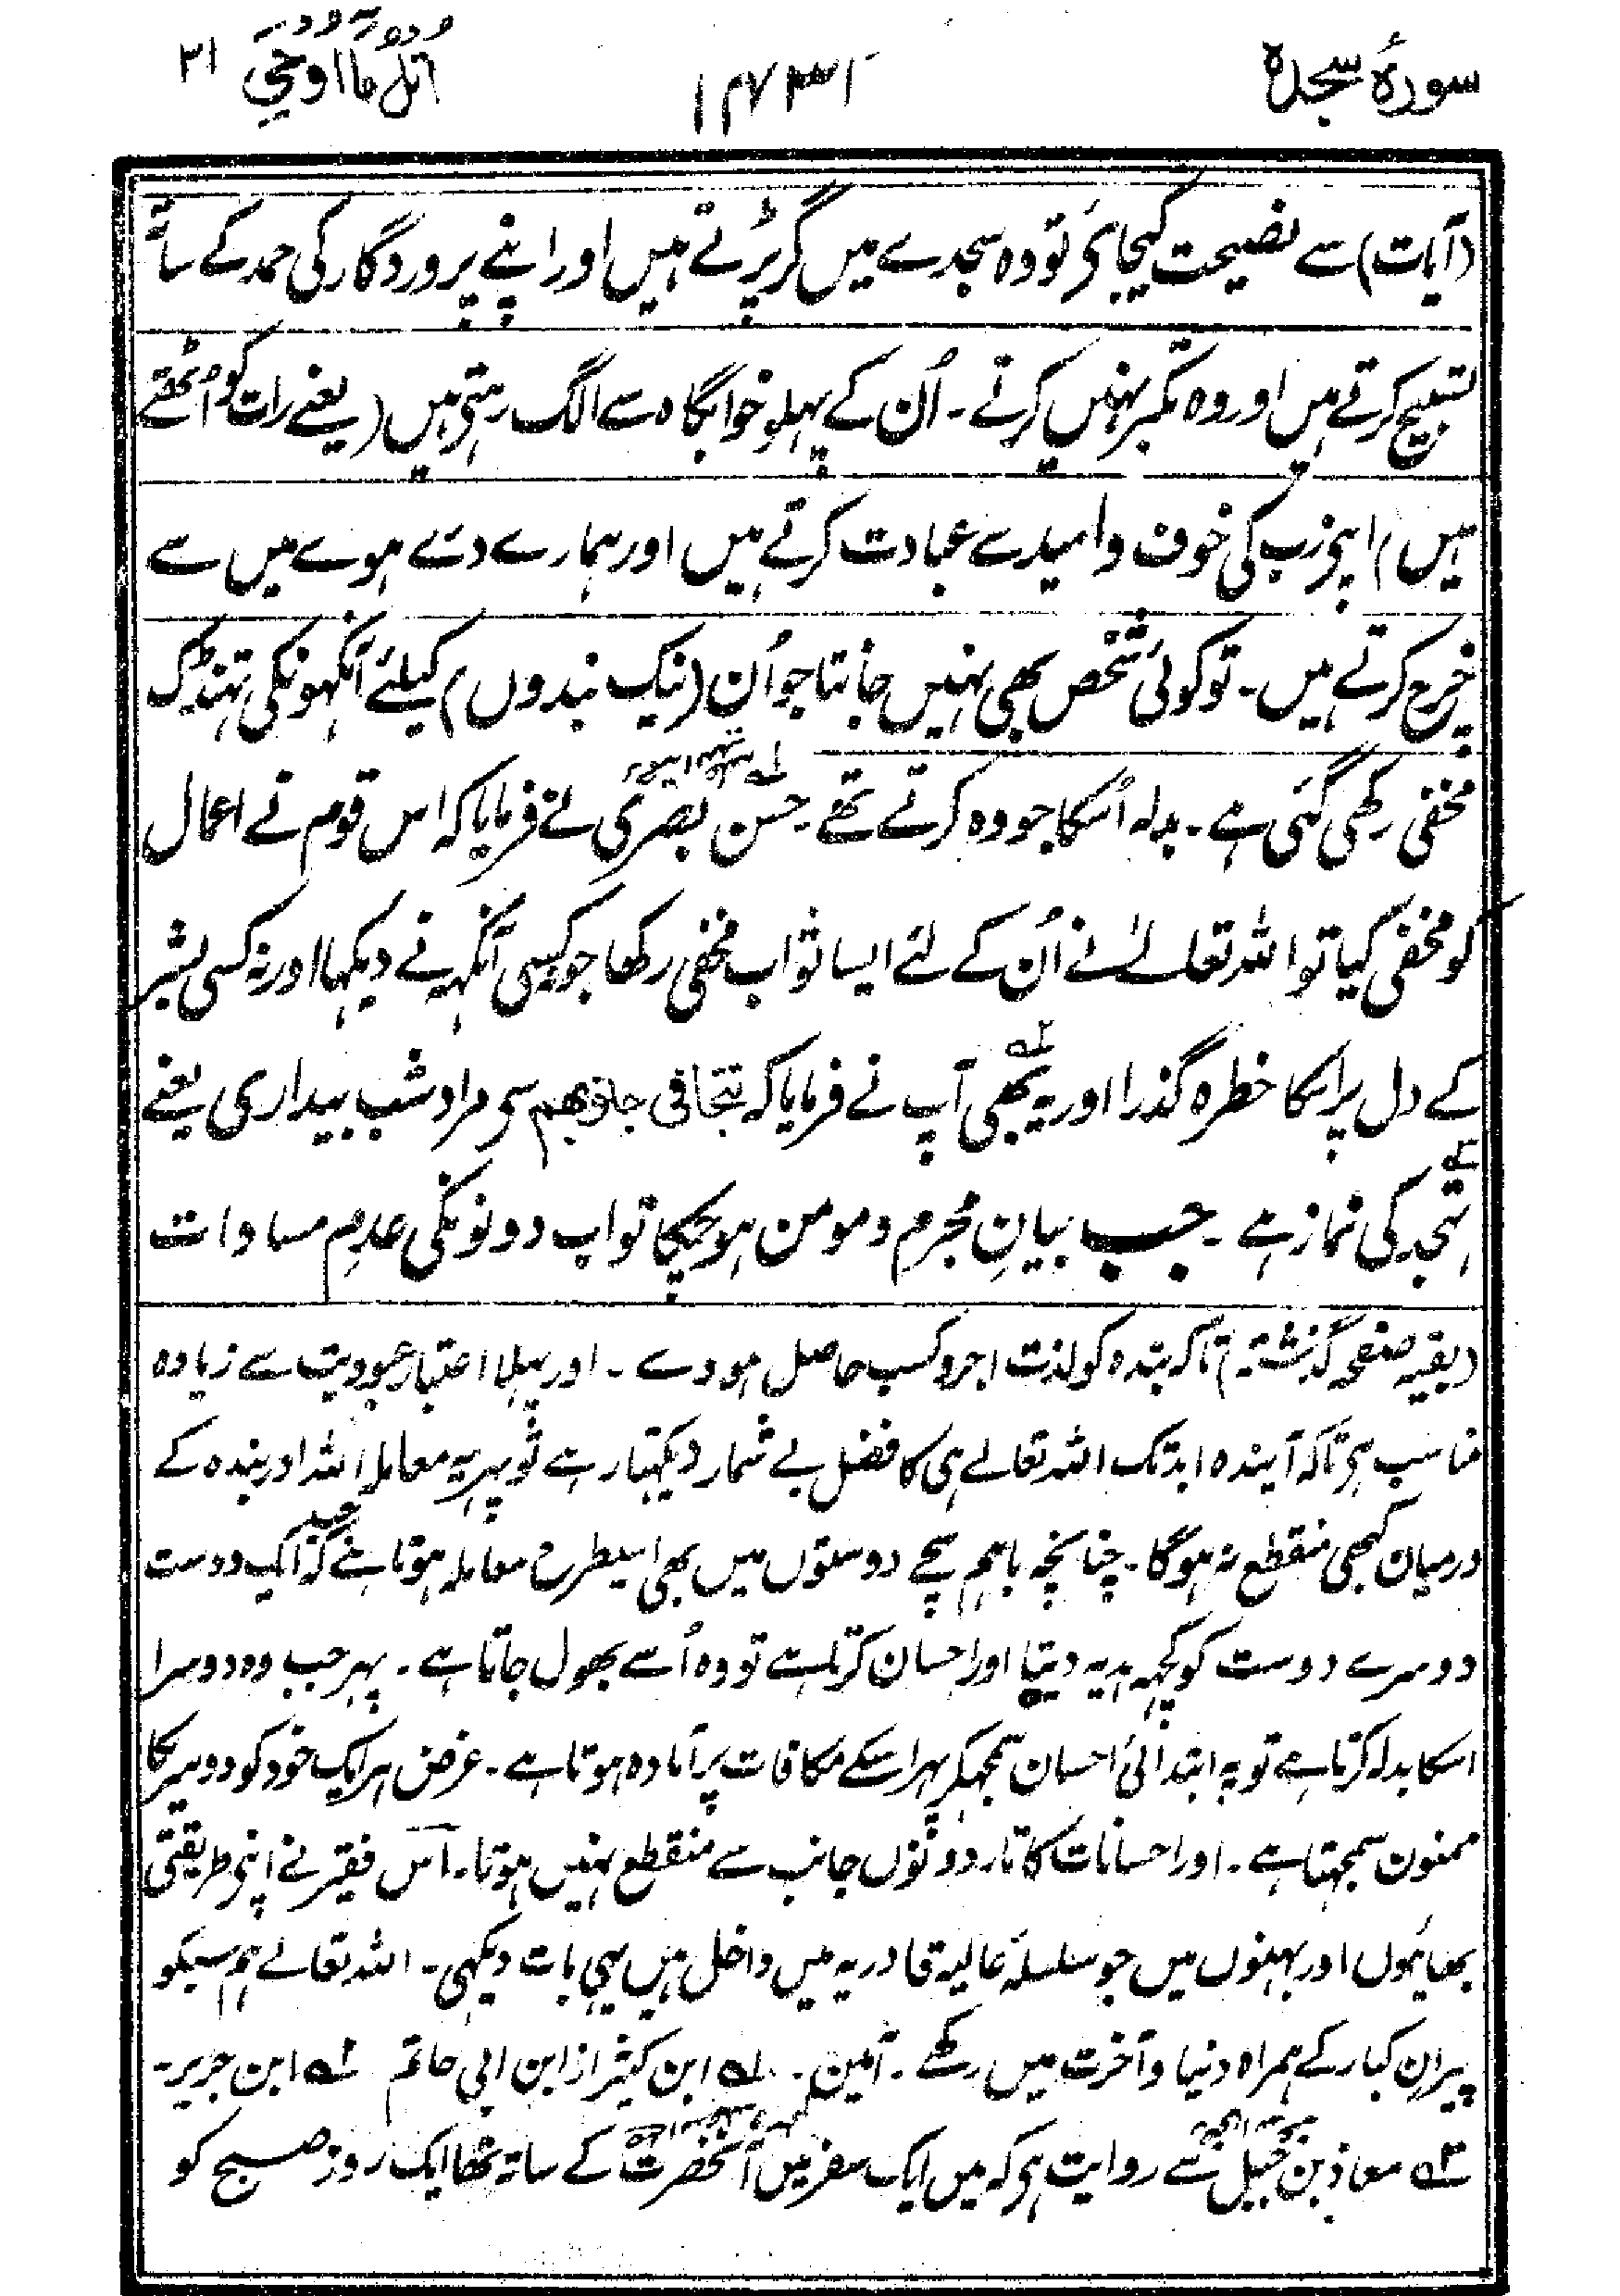 سورۂ سجدہ
۱۴۷۳
اُتْلُ مَآ اُوْحِیَ ۲۱
(آیات) سے نصیحت کیجائی تو وہ سجدے میں گر پڑتے ہیں اور اپنے پروردگار کی حمد کے ساتھ
تسبیح کرتے ہیں اور وہ تکبر نہیں کرتے۔ اُن کے پہلو خوابگاہ سے الگ رہتی ہیں (یعنے رات کو اُٹھتے
ہیں) اپنی رب کی خوف و امید سے عبادت کرتے ہیں اور ہمارے دئے ہوے میں سے
خرچ کرتے ہیں۔ تو کوئی شخص بھی نہیں جانتا جو اُن (نیک بندوں) کیلئے آنکھونکی ٹہنڈک
مخفی رکھی گئی ہے۔ بدلہ اُسکا جو وہ کرتے تھے۔ حسن بصری نے فرمایا کہ اس قوم نے اعمال
کو مخفی کیا تو اللہ تعالےٰ نے اُن کے لئے ایسا ثواب مخفی رکھا جو کیسی آنکہہ نے دیکہا اور نہ کسی بشر
کے دل پر اسکا خطرہ گذرا اور یہ بھی آپ نے فرمایا کہ تتجافی جنوبھم سی مراد شب بیداری یعنے
تہجد کی نماز ہے۔ جب بیانِ مجرم و مومن ہوچکا تو اب دونونکی عدمِ مساوات
(بقیہ صفحہ گذشتہ) تاکہ بندہ کو لذت اجر و کسب حاصل ہووے۔ اور پہلا اعتبار عبودیت سے زیادہ
مناسب ہی تاکہ آیندہ ابد تک اللہ تعالے ہی کا فضل بے شمار دیکہتا رہے تو پہر یہ معاملہ اللہ اور بندہ کے
درمیان کبھی منقطع نہ ہوگا۔ چنانچہ باہم سچے دوستوں میں بھی اسیطرح معاملہ ہوتا ہے کہ جب ایک دوست
دوسرے دوست کو کچہہ ہدیہ دیتا اور احسان کرتا ہے تو وہ اُسے بھول جاتا ہے۔ پہر جب وہ دوسرا
اسکا بدلہ کرتا ہے تو یہ ابتدائی احسان سمجہکر پہر اسکے مکافات پر آمادہ ہوتا ہے۔ غرض ہر ایک خود کو دوسریکا
ممنون سمجہتا ہے۔ اور احسانات کا تار دونوں جانب سے منقطع نہیں ہوتا۔ اس فقیر نے اپنی طریقتی
بھایئوں اور بہنوں میں جو سلسلۂ عالیہ قادریہ میں داخل ہیں یہی بات دیکہی۔ اللہ تعالے ہم سبکو
پیرانِ کبار کے ہمراہ دنیا و آخرت میں رکہے۔ آمین۔ لہ ابن کثیر از ابن ابی حاتم ۲ہ ابن جریر۔
۳ہ معاذ بن جبل سے روایت ہی کہ میں ایک سفر میں آنحضرت کے ساتہ تھا ایک روز صبح کو